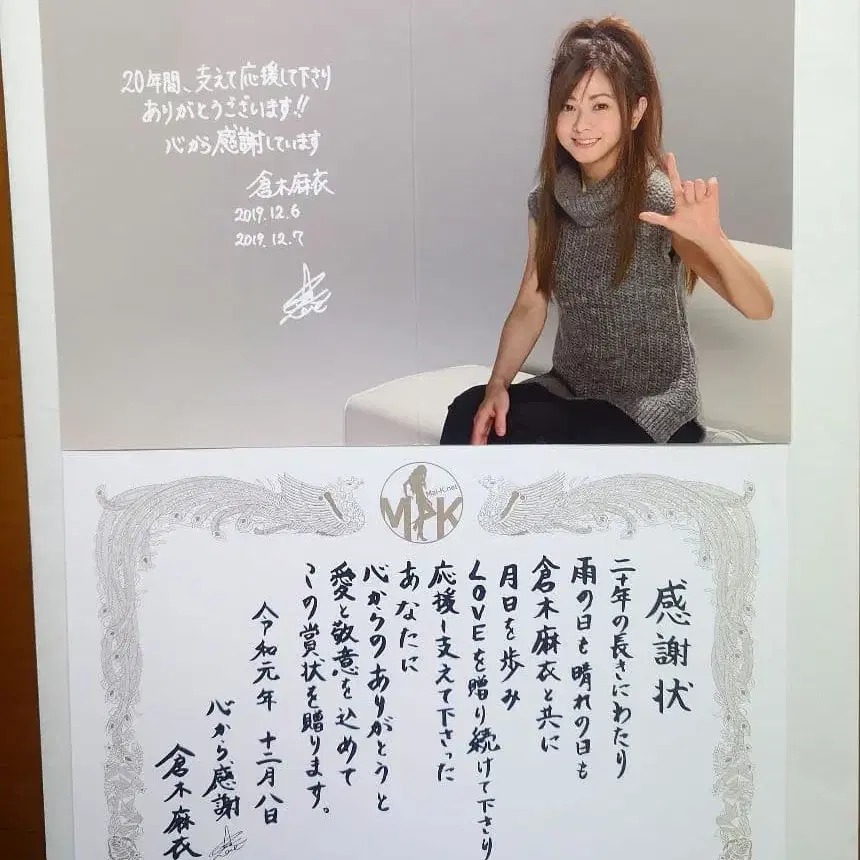 20年間、支えて応援して下さり
ありがとうございます!!
心から感謝しています
倉木麻衣
2019.12.6
2019.12.7
Mai-K.net
M K
感謝状
二十年の長きにわたり
雨の日も晴れの日も
倉木麻衣と共に
月日を歩み
LOVEを贈り続けて下さり
応援し支えて下さった
あなたに
心からのありがとうと
愛と敬意を込めて
この賞状を贈ります。
令和元年 十二月八日
心から感謝
倉木麻衣